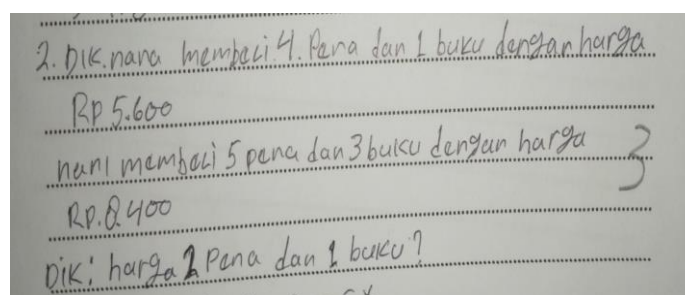 2. DIK. nana membeli 4. Pena dan 1 buku dengan harga
RP 5.600
nani membeli 5 pena dan 3 buku dengan harga
3
RP. 8.400
Dik: harga 2 Pena dan 1 buku?